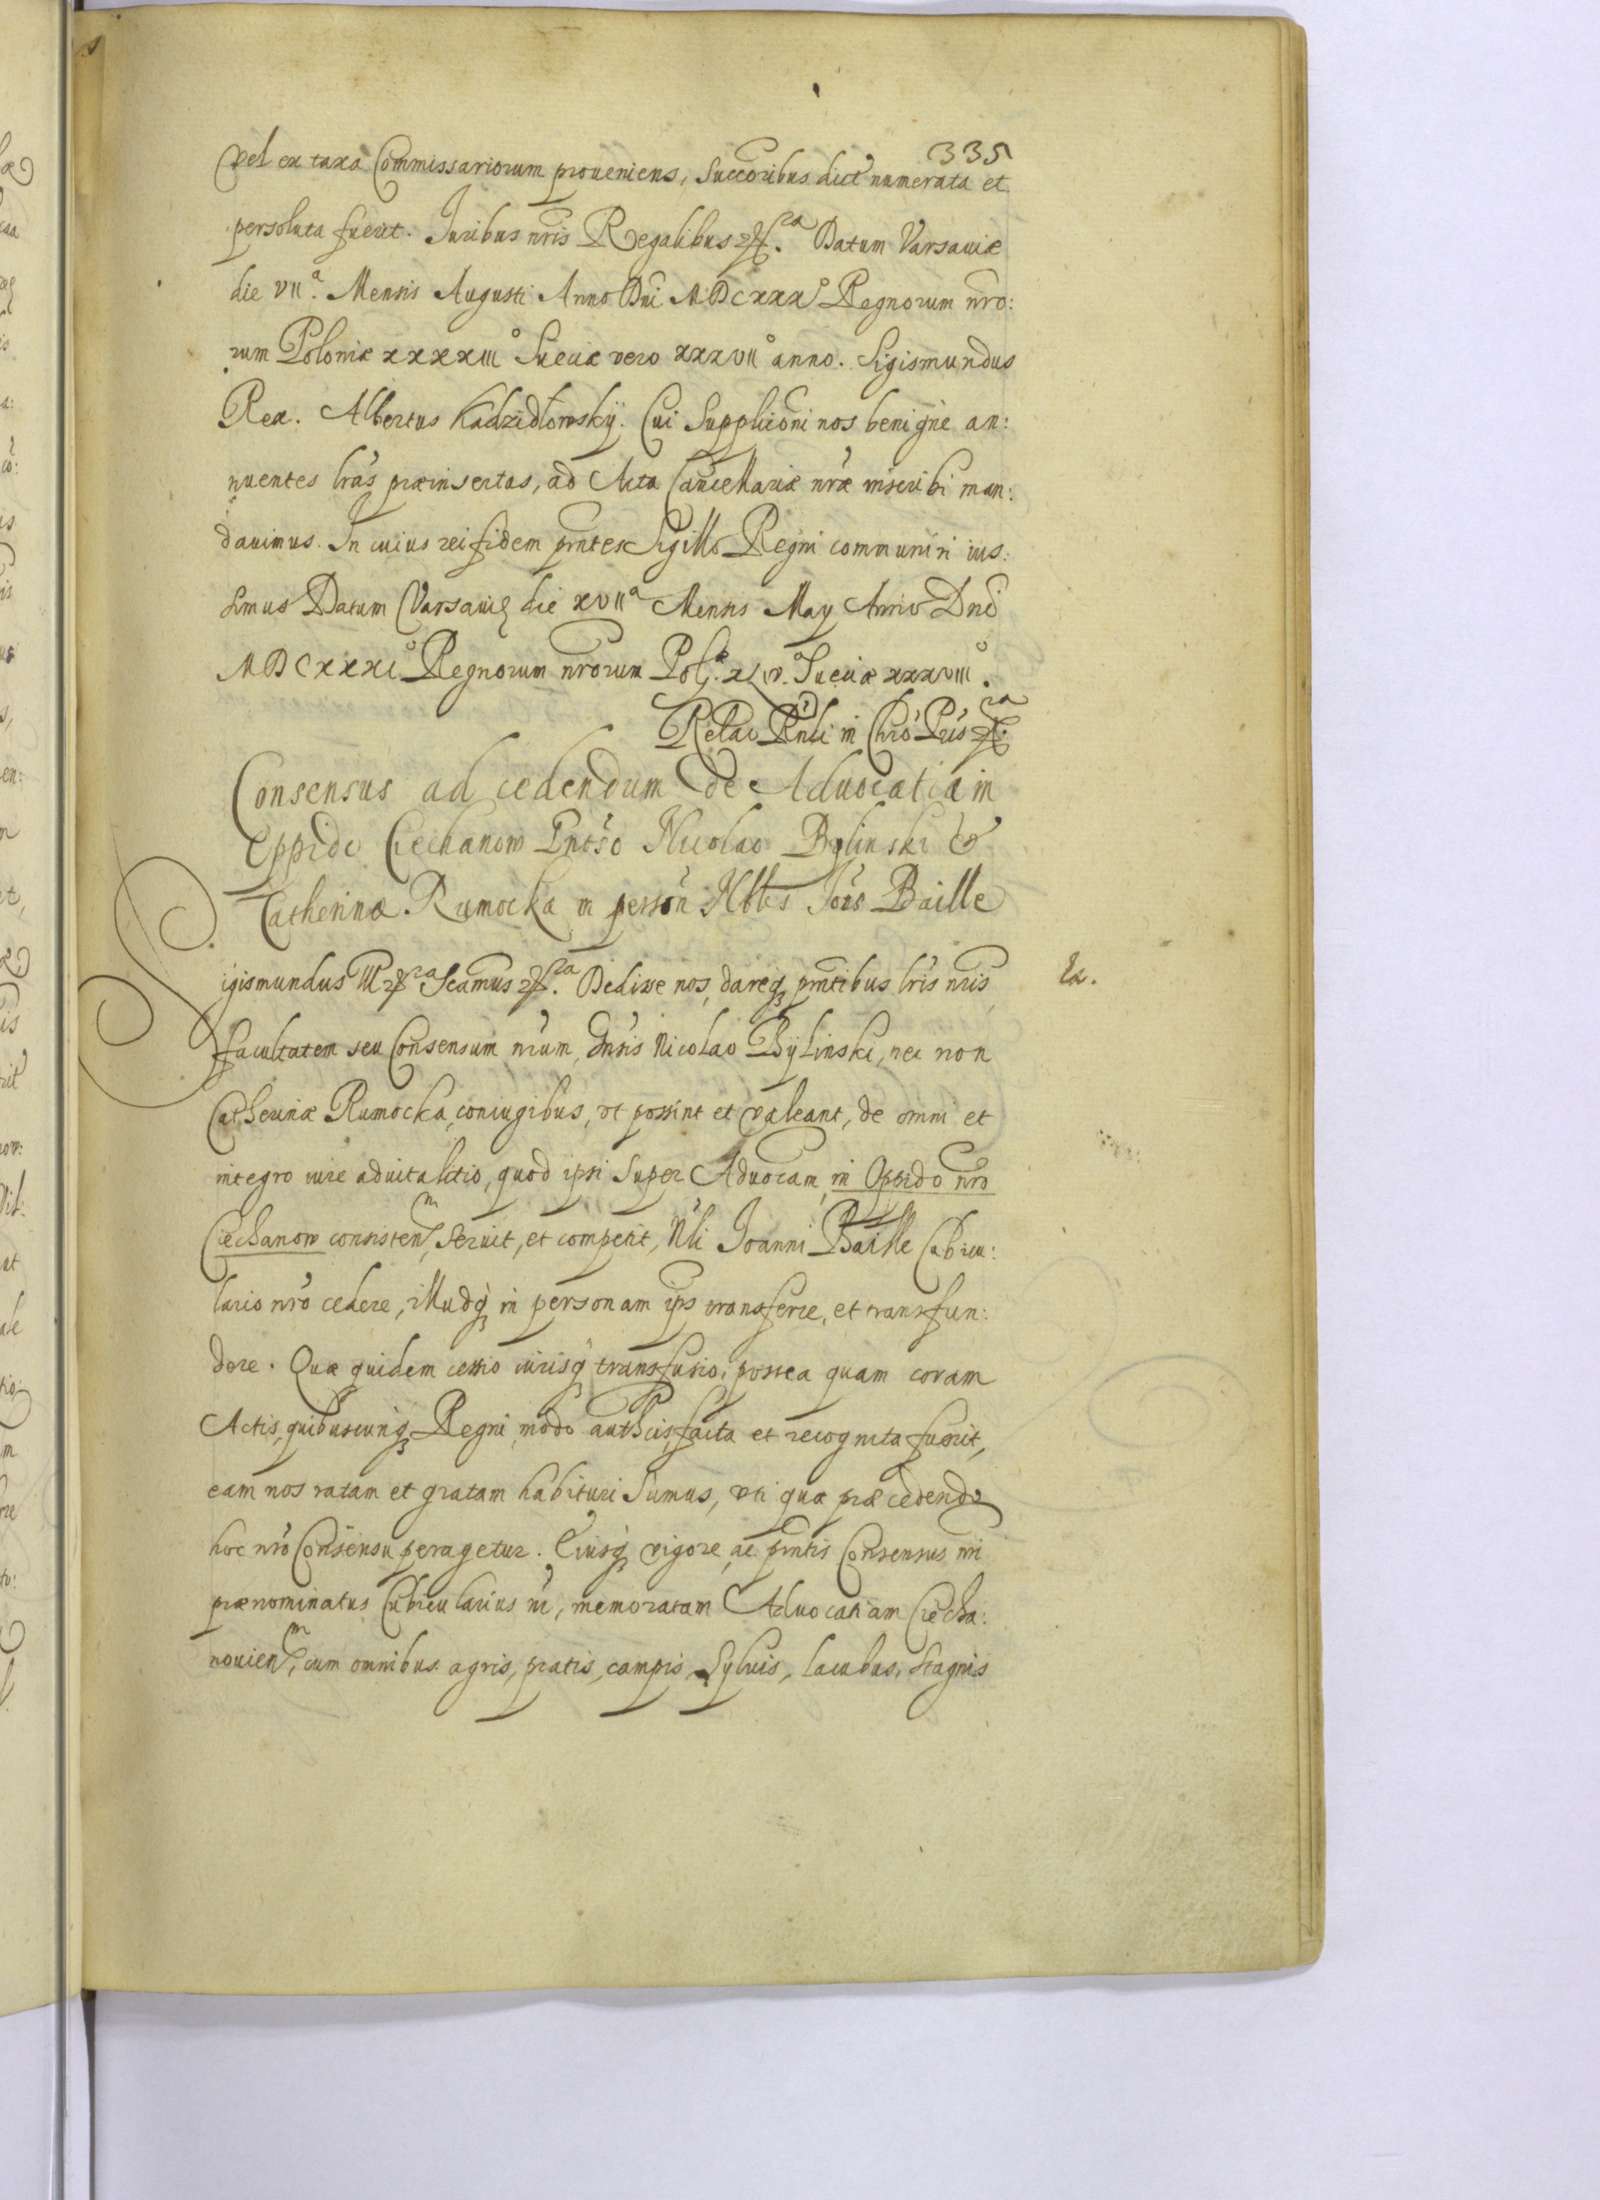 335
vel ex taxa Commissariorum proueniens, Succoribus dict numerata et
persoluta fuerit. Juribus nris Regalibus &c. ra Datum Varsauiæ
die VII a. Mensis Augusti Anno Dni MDCXXX o Regnorum nro:
rum Poloniæ XXXXIII o Sueciæ vero XXXVII o anno. Sigismundus
Rex. Albertus Kadzidłowskÿ. Cui Supplicõni nos benigne an:
nuentes lrãs præinsertas, ad Acta Cancellariæ nræ inscribi man:
dauimus. In cuius rei fidem pntes Sigillo Regni communiri ius:
simus Datum Varsauiæ die XVII a Mensis May Anno Dni
MDCXXXI o Regnorum nrorum Pol. Sueciæ XXXVIII o.
Relao Rndi in Chro Pris &c. ra
Consensus ad cedendum de Aduocatia in
Oppido Ciechanow Gnõso Nicolao Bylinski &
Catherinæ Rumocka in person Nblis Jois Baille
igismundus III &c. ra Scamus &c. ra Dedisse nos, dareq pntibus lris nris
facultatem seu Consensum nrum, Gnsis Nicolao Bÿlinski, nec non
Catherinæ Rumocka, coniugibus, vt possint et valeant, de omni et
integro iure aduitalitio, quod ipsi Super Aduocam in Oppido nro
Ciechanow consisten m, Seruit, et competit, Nli Joanni Baille Cubicu:
lario nro cedere, illudq in personam ips transferre, et transfun:
dere. Quæ quidem cessio iurisq transfusio, postea quam coram
Actis, quibuscunq Regni, modo authcis, facta et recognita fuerit,
eam nos ratam et gratam habituri Sumus, vti quæ præcedende
hoc nro Consensu peragetur. Cuiusq vigore, ac pntis Consensus nri
prænominatus Cubicularius nr, memoratam Aduocatiam Ciecha:
nouien m, cum omnibus agris, pratis, campis, Syluis, lacubus, stagnis